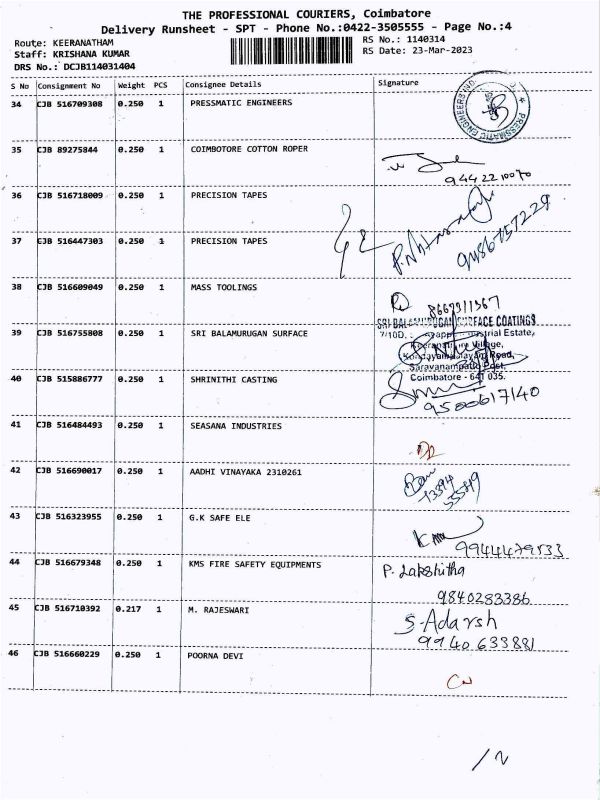 THE PROFESSIONAL COURIERS, Coimbatore
Delivery Runsheet - SPT - Phone No.:0422-3505555 - Page No.:4
Route: KEERANATHAM RS No.: 1140314
Staff: KRISHANA KUMAR RS Date: 23-Mar-2023
DRS No.: DCJB114031404
S No Consignment No Weight PCS Consignee Details Signature
34 CJB 516709308 0.250 1 PRESSMATIC ENGINEERS
PRESSMATIC ENGINEERS
35 CJB 89275844 0.250 1 COIMBOTORE COTTON ROPER
9442210070
36 CJB 516718009 0.250 1 PRECISION TAPES
37 CJB 516447303 0.250 1 PRECISION TAPES
9486757229
38 CJB 516609049 0.250 1 MASS TOOLINGS
SRI BALAMURUGAN SURFACE COATINGS
39 CJB 516755808 0.250 1 SRI BALAMURUGAN SURFACE
Industrial Estate,
Keeranatham Village,
Kondayampalayam Road,
Saravanampatti Post,
Coimbatore - 641 035.
40 CJB 515886777 0.250 1 SHRINITHI CASTING
9500617140
41 CJB 516484493 0.250 1 SEASANA INDUSTRIES
42 CJB 516690017 0.250 1 AADHI VINAYAKA 2310261
43 CJB 516323955 0.250 1 G.K SAFE ELE
9944479533
44 CJB 516679348 0.250 1 KMS FIRE SAFETY EQUIPMENTS
P. Lakshitha
9840283386
45 CJB 516710392 0.217 1 M. RAJESWARI
S. Adarsh
9940633881
46 CJB 516660229 0.250 1 POORNA DEVI